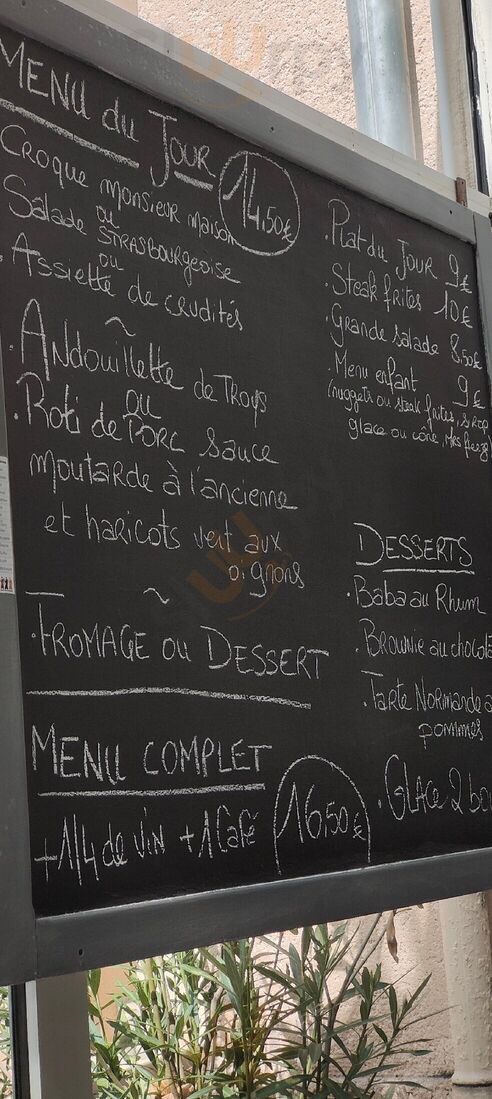 MENU du JOUR 14.50€
CROQUE monsieur maison
ou
Salade STRASBOURGEOISE
ou
. Assiette de crudités
~
. ANdouillette de TROYS
ou
. Roti de PORC sauce
moutarde à l'ancienne
et haricots vert aux
oignons
~
. FROMAGE ou DESSERT
MENU COMPLET 16,50€
+ 1/4 de vin + 1 Café
. Plat du JOUR 9€
. Steak frites 10€
. Grande salade 8.50€
. Menu enfant 9€
(nuggets ou steak frites, sirop
glace ou cone, Mrs freeze)
DESSERTS
. Baba au Rhum
. Brownie au chocola
. Tarte Normande a
pommes
. GLACE 2 bo